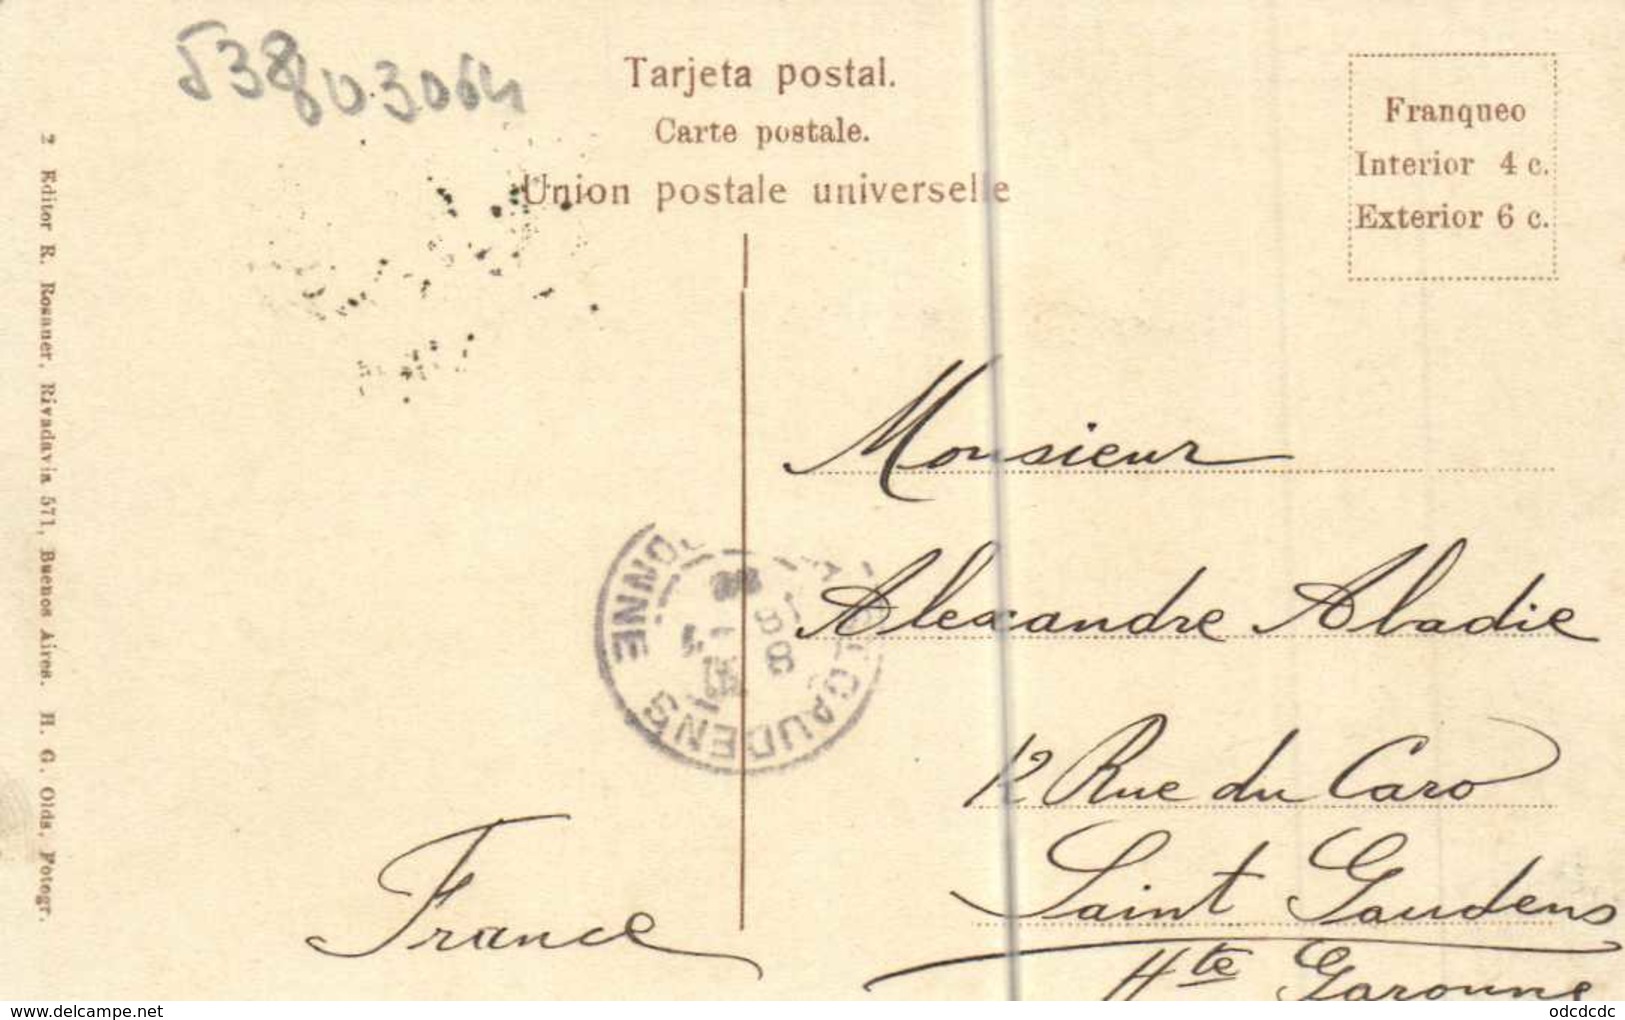 Tarjeta postal.
Carte postale.
Union postale universelle
Franqueo
Interior 4 c.
Exterior 6 c.
2 Editor R. Rosauer, Rivadavia 571, Buenos Aires. H. G. Olds, Fotogr.
Monsieur
Alexandre Abadie
12 Rue du Caro
Saint Gaudens
Hte Garonne
France
ST GAUDENS
delcampe.net
odcdcdc